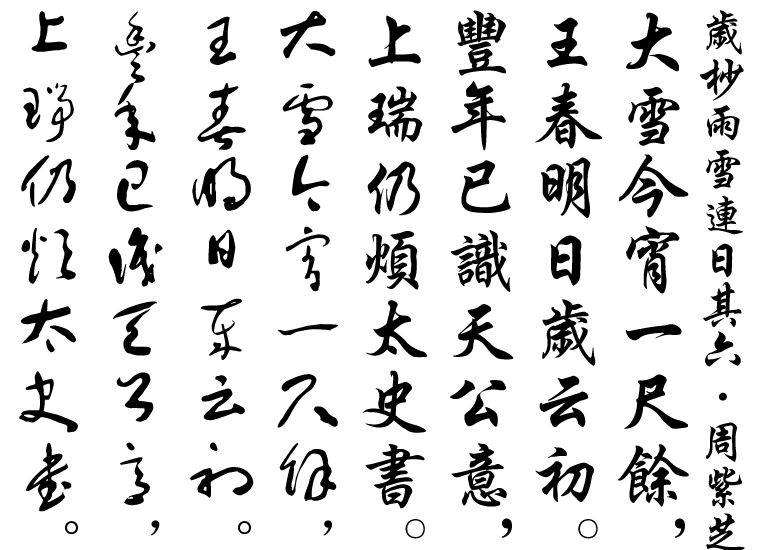 歲杪雨雪連日其六·周紫芝
大雪今宵一尺餘，
王春明日歲云初。
豐年已識天公意，
上瑞仍煩太史書。
大雪今宵一尺餘，
王春明日歲云初。
豐年已識天公意，
上瑞仍煩太史書。